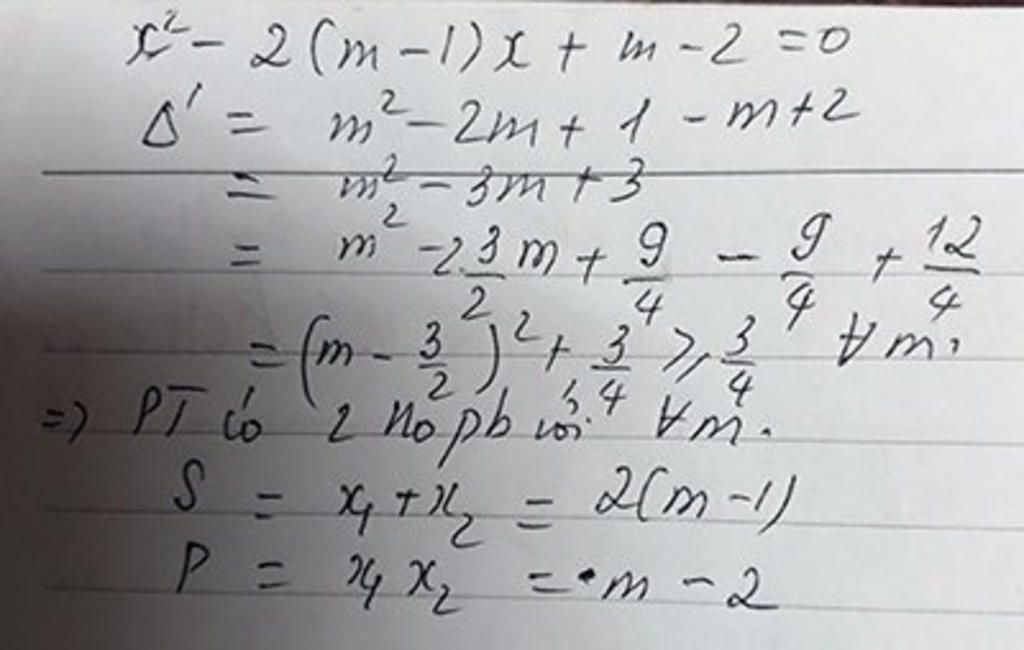 x² - 2(m - 1)x + m - 2 = 0
Δ' = m² - 2m + 1 - m + 2
= m² - 3m + 3
= m² - 2.3/2 m + 9/4 - 9/4 + 12/4
= (m - 3/2)² + 3/4 ≥ 3/4 ∀m.
=> PT có 2 no pb với ∀m.
S = x₁ + x₂ = 2(m - 1)
P = x₁x₂ = m - 2